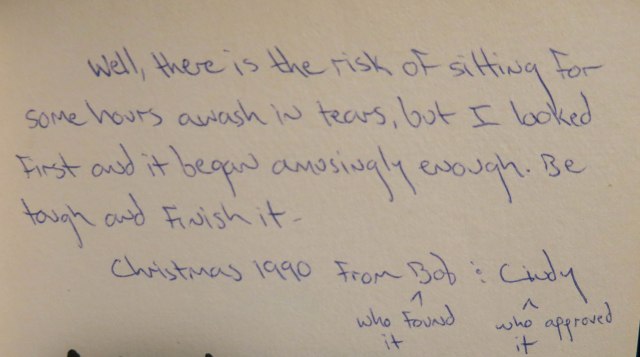 Well, there is the risk of sitting for
some hours awash in tears, but I looked
First and it began amusingly enough. Be
tough and Finish it -
Christmas 1990 From Bob : Cindy
^ ^
who found who approved
it it